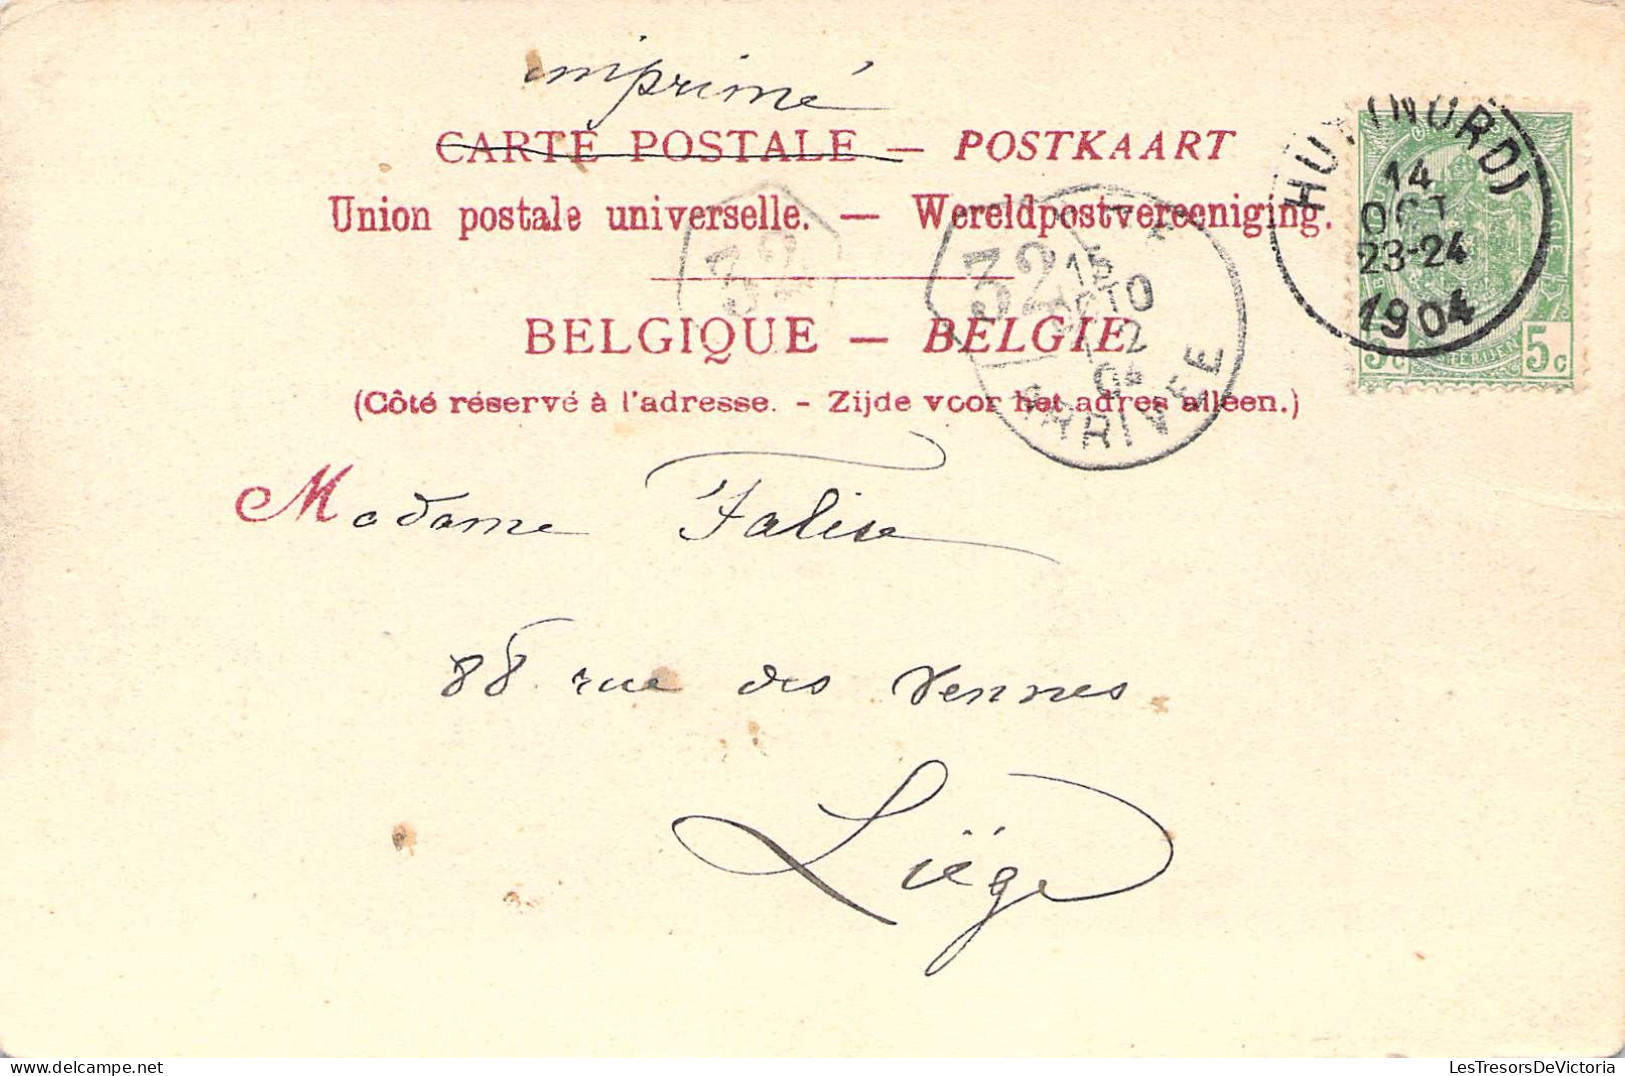 imprimé
CARTE POSTALE — POSTKAART
Union postale universelle. — Wereldpostvereeniging.
BELGIQUE — BELGIE
(Côté réservé à l'adresse. - Zijde voor het adres alleen.)
HUY (NORD)
14
OCT
23-24
1904
5c 5c
32
32
15
OCTO
12
04
ARRIVEE
Madame Falise
88 rue des Vennes
Liége
LesTresorsDeVictoria.com